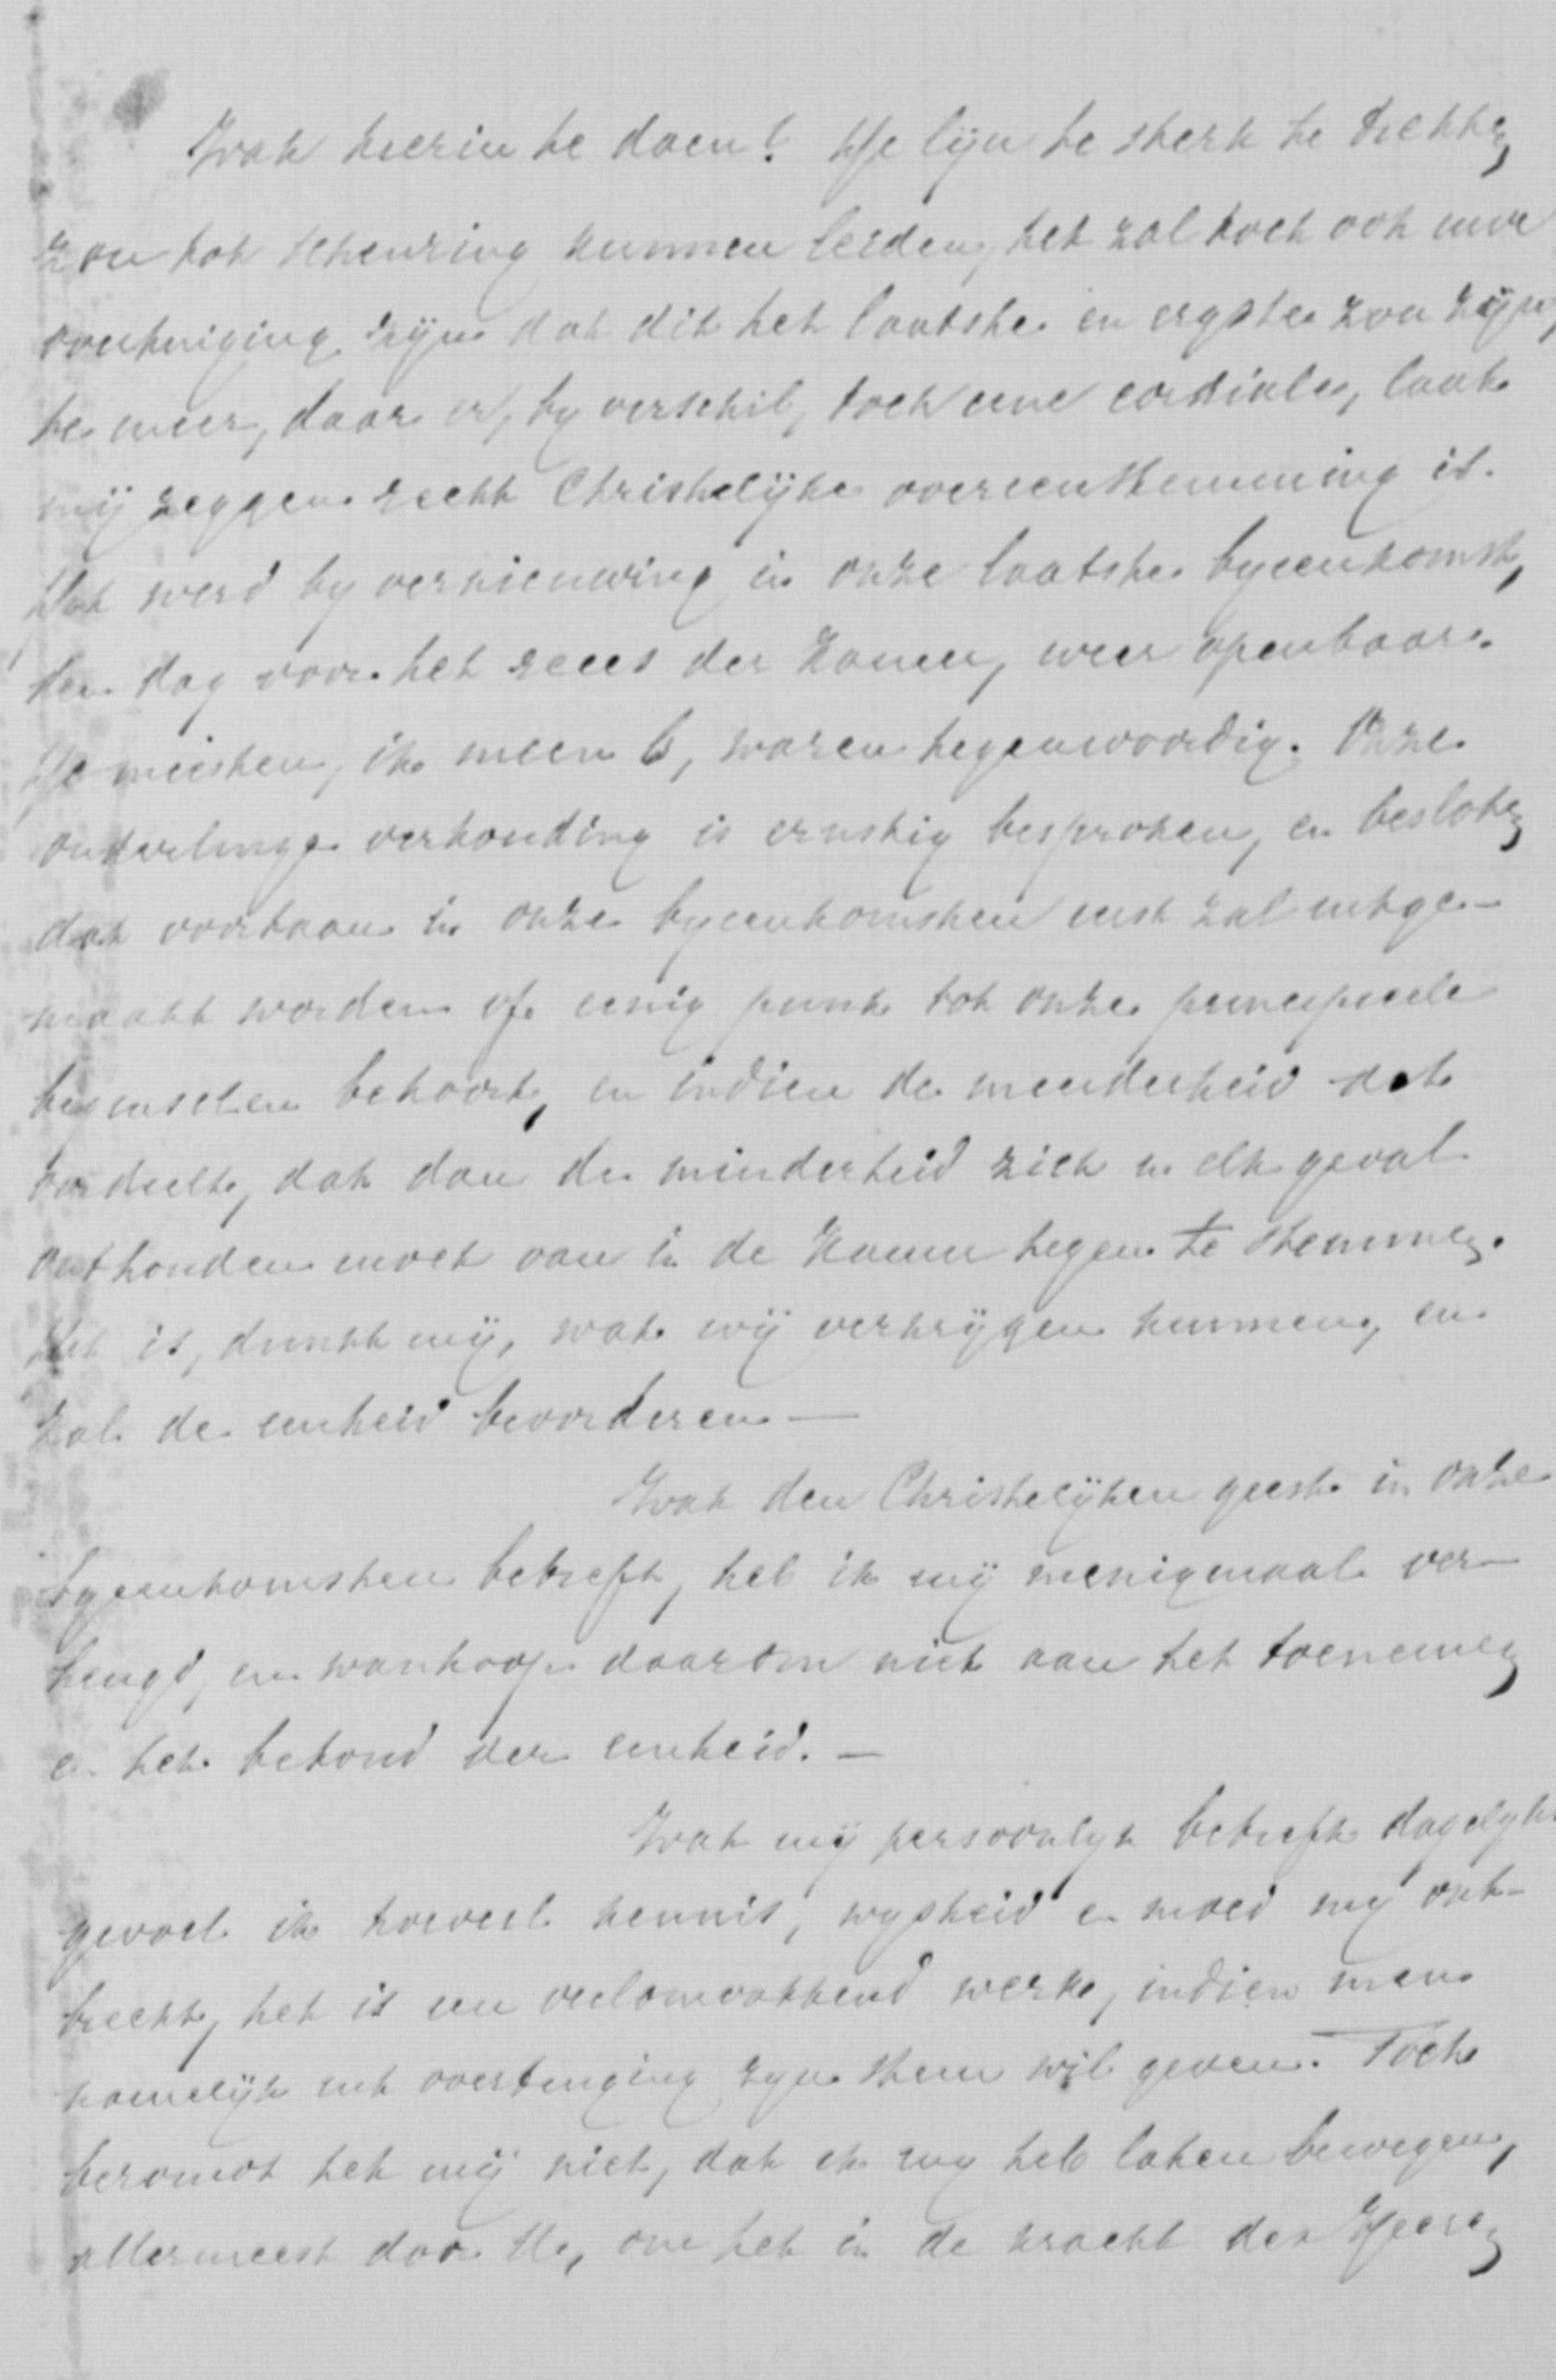 Wat hierin te doen? De lijn te sterk te trekken
zou tot scheuring kunnen leiden, het zal toch ook uwe
overtuiging zijn dat dit het laatste en ergste zou zijn,
te meer, daar er, by verschil, toch eene cordiale, laat
mij zeggen recht Christelijke overeenstemming is.
Dat werd by vernieuwing in onze laatste byeenkomst,
den dag voor het reces der Kamer, weer openbaar.
De meesten, ik meen 6, waren tegenwoordig. Onze
onderlinge verhouding is ernstig besproken, en besloten
dat voortaan in onze byeenkomsten eerst zal uitge-
maakt worden of eenig punt tot onze principieele
beginselen behoort, en indien de meerderheid dat
oordeelt, dat dan de minderheid zich in elk geval
onthouden moet van in de Kamer tegen te stemmen.
Dit is, dunkt mij, wat wij verkrijgen kunnen, en
zal de eenheid bevorderen —
Wat den Christelijken geest in onze
byeenkomsten betreft, heb ik mij menigmaal ver-
heugd, en wanhoop daarom niet aan het toenemen
en het behoud der eenheid. —
Wat mij persoonlyk betreft dagelyks
gevoel ik hoeveel kennis, wysheid en moed my ont-
breekt, het is een veelomvattend werk, indien men
namelijk uit overtuiging zyn stem wil geven. Toch
berouwt het mij niet, dat ik my heb laten bewegen,
allermeest door U, om het in de kracht des Heeren